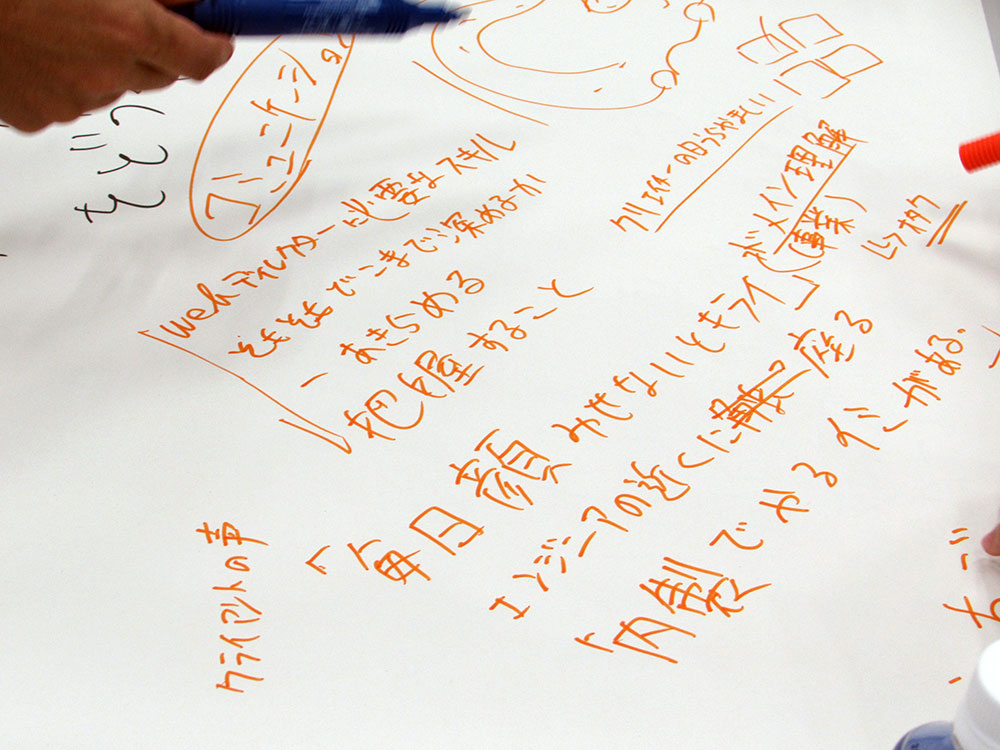 コミュニケーション
webディレクターに必要なスキル
そもそもどこまで深めるか
- あきらめる
把握すること
クリエイターの
ドメイン理解
(事業)
「毎日顔みせないとキライ」
エンジニアの近くに座る
「内製でやるイミがある。
クライアントの声